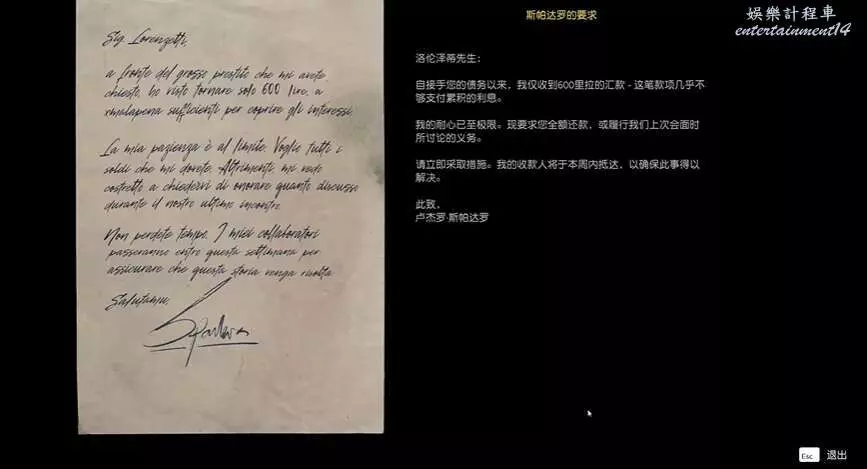 Sig. Lorenzetti,
a fronte del grosso prestito che mi avete
chiesto, ho visto tornare solo 600 lire, a
malapena sufficienti per coprire gli interessi.
La mia pazienza è al limite. Voglio tutti i
soldi che mi dovete. Altrimenti, mi vedo
costretto a chiedervi di onorare quanto discusso
durante il nostro ultimo incontro.
Non perdete tempo. I miei collaboratori
passeranno entro questa settimana per
assicurare che questa storia venga risolta.
Salutamu,
Spadaro
斯帕达罗的要求
洛伦泽蒂先生：
自接手您的债务以来，我仅收到600里拉的汇款 - 这笔款项几乎不
够支付累积的利息。
我的耐心已至极限。现要求您全额还款，或履行我们上次会面时
所讨论的义务。
请立即采取措施。我的收款人将于本周内抵达，以确保此事得以
解决。
此致，
卢杰罗·斯帕达罗
娛樂計程車
entertainment14
Esc 退出